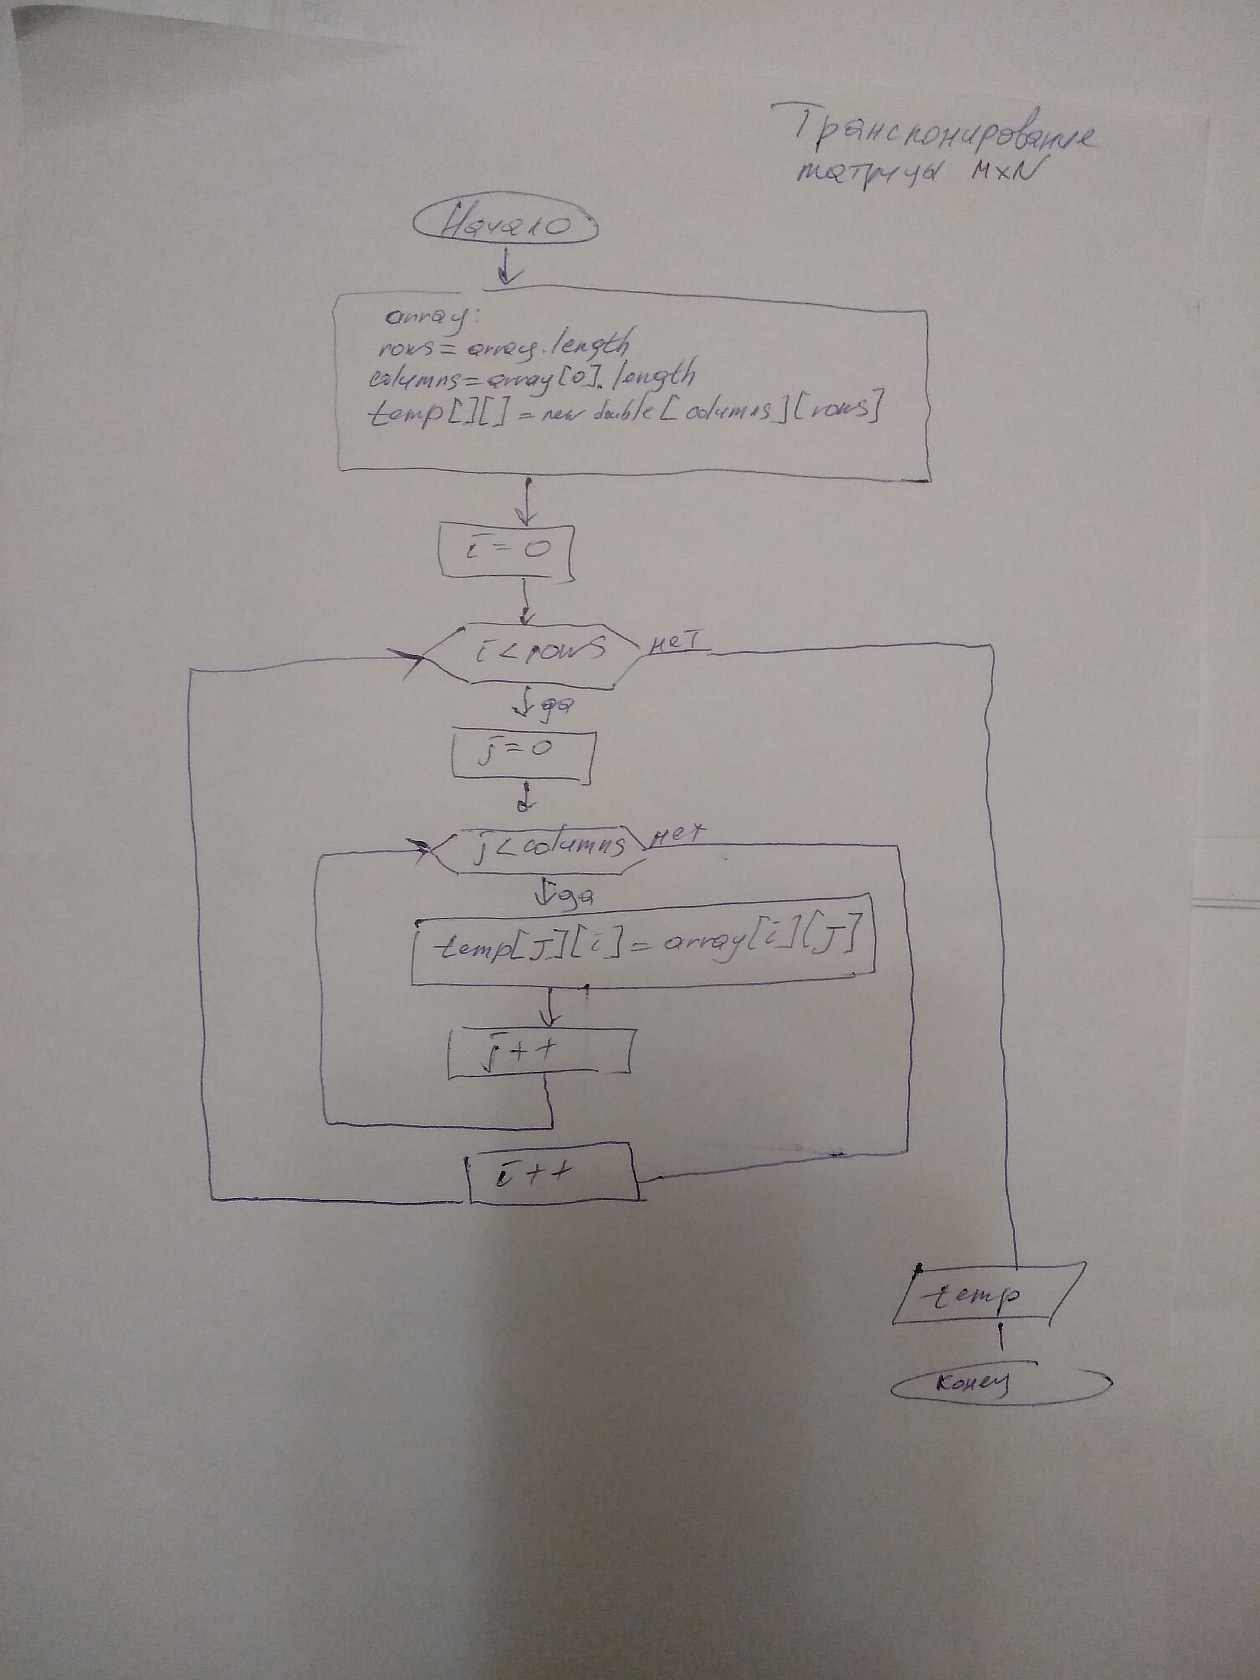 Транспонирование
матрицы M×N
Начало
array:
rows = array.length
columns = array[0].length
temp[][] = new double[columns][rows]
i = 0
i < rows
нет
да
j = 0
j < columns
нет
да
temp[j][i] = array[i][j]
j++
i++
temp
конец